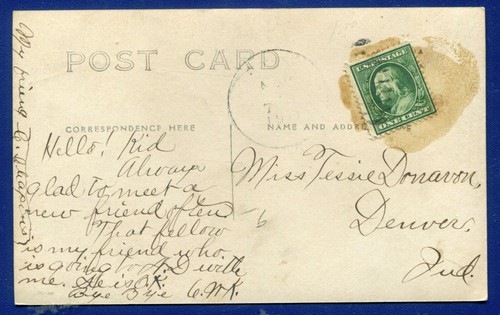 POST CARD
CORRESPONDENCE HERE
NAME AND ADDRE
U.S. POSTAGE
ONE CENT
Hello! Kid
Always
glad to meet a
new friend often
That fellow
is my friend who
is going to A.D. with
me. He is O.K.
Bye Bye C.W.K.
My friend C.
Miss Tessie Donavon,
Denver,
Ind.